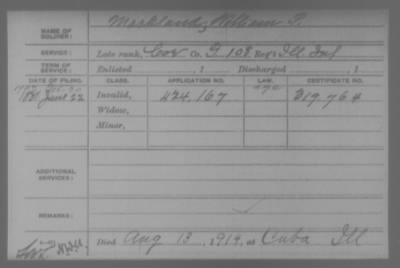 NAME OF SOLDIER: Markland, William T.
SERVICE: Late rank, Cor Co. G, 108 Reg't Ill. Inf
TERM OF SERVICE: Enlisted , 1 Discharged , 1
DATE OF FILING. CLASS. APPLICATION NO. LAW. CERTIFICATE NO.
June 22 Invalid, 424,167 319,764
Widow,
Minor,
ADDITIONAL SERVICES:
REMARKS:
Died Aug 13, 1914, at Cuba Ill